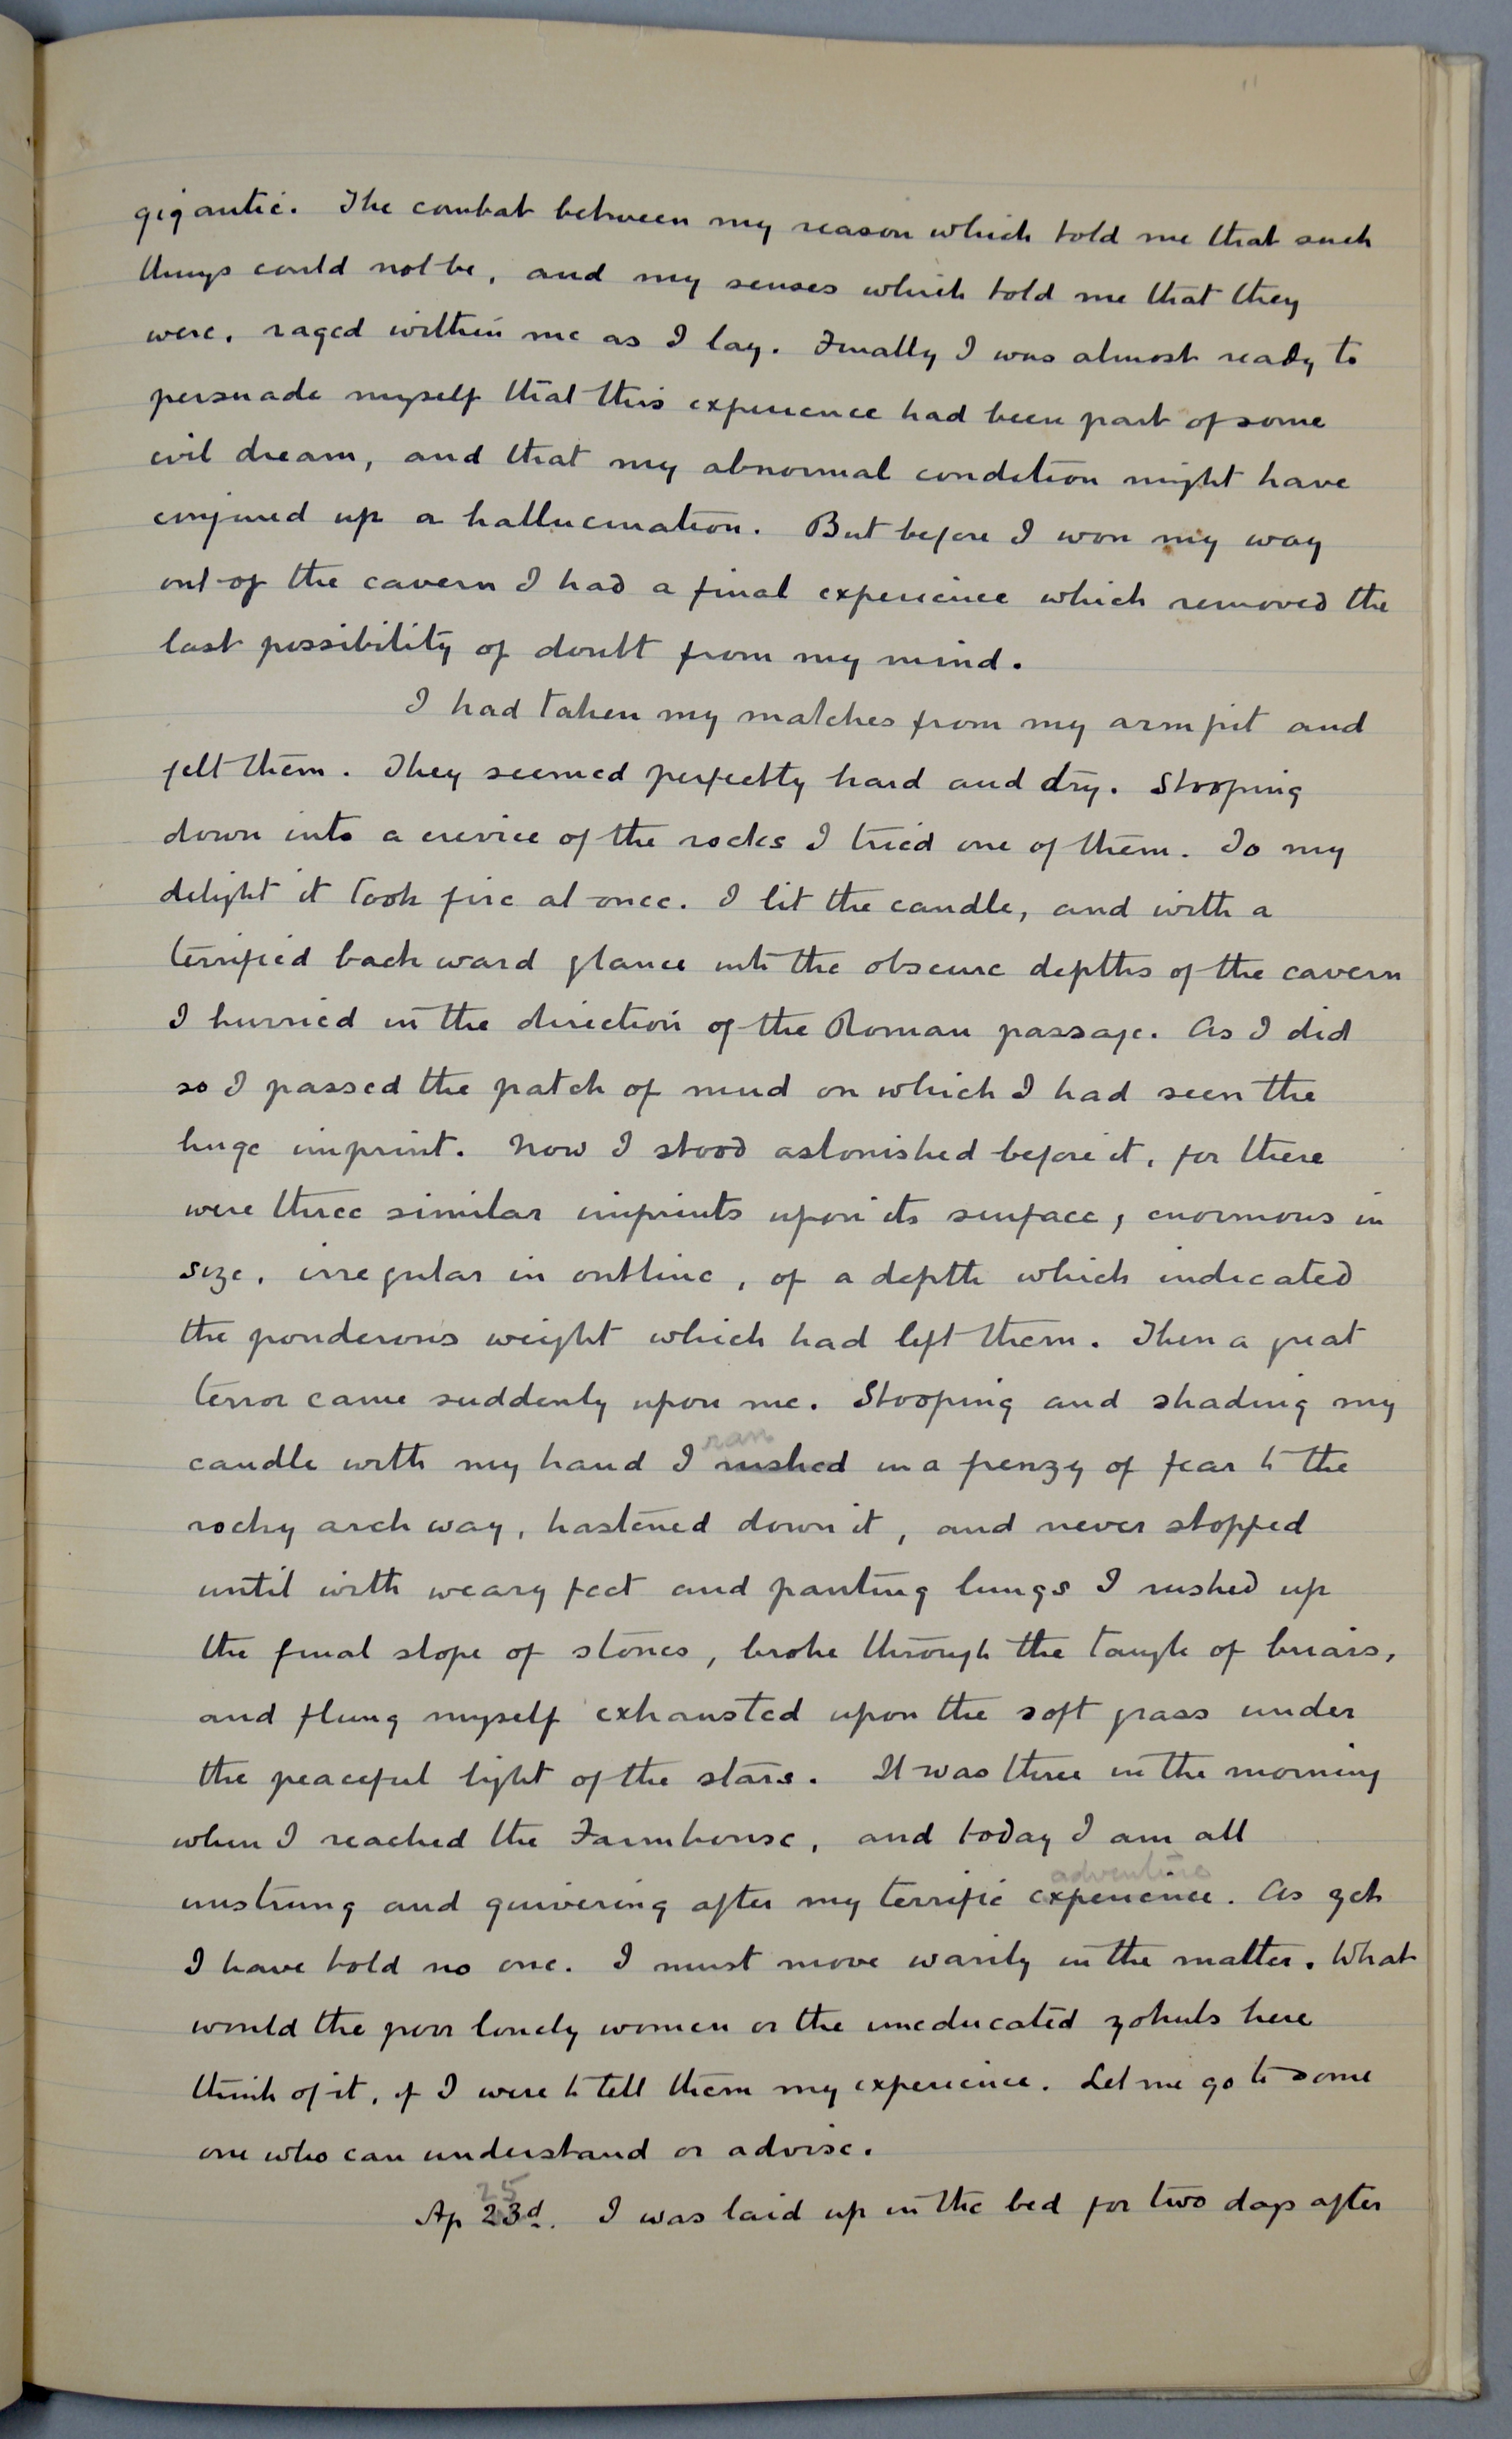 gigantic. The combat between my reason which told me that such
things could not be, and my senses which told me that they
were, raged within me as I lay. Finally I was almost ready to
persuade myself that this experience had been part of some
evil dream, and that my abnormal condition might have
conjured up a hallucination. But before I won my way
out of the cavern I had a final experience which removed the
last possibility of doubt from my mind.
I had taken my matches from my armpit and
felt them. They seemed perfectly hard and dry. Stooping
down into a crevice of the rocks I tried one of them. To my
delight it took fire at once. I lit the candle, and with a
terrified backward glance into the obscure depths of the cavern
I hurried in the direction of the Roman passage. As I did
so I passed the patch of mud on which I had seen the
huge imprint. Now I stood astonished before it, for there
were three similar imprints upon its surface, enormous in
size, irregular in outline, of a depth which indicated
the ponderous weight which had left them. Then a great
terror came suddenly upon me. Stooping and shading my
ran
candle with my hand I rushed in a frenzy of fear to the
rocky archway, hastened down it, and never stopped
until with weary feet and panting lungs I rushed up
the final slope of stones, broke through the tangle of briars,
and flung myself exhausted upon the soft grass under
the peaceful light of the stars. It was three in the morning
when I reached the Farmhouse, and today I am all
adventure
unstrung and quivering after my terrific experience. As yet
I have told no one. I must move warily in the matter. What
would the poor lonely women or the uneducated yokels here
think of it, if I were to tell them my experience. Let me go to some
one who can understand or advise.
25
Ap 23d. I was laid up in the bed for two days after